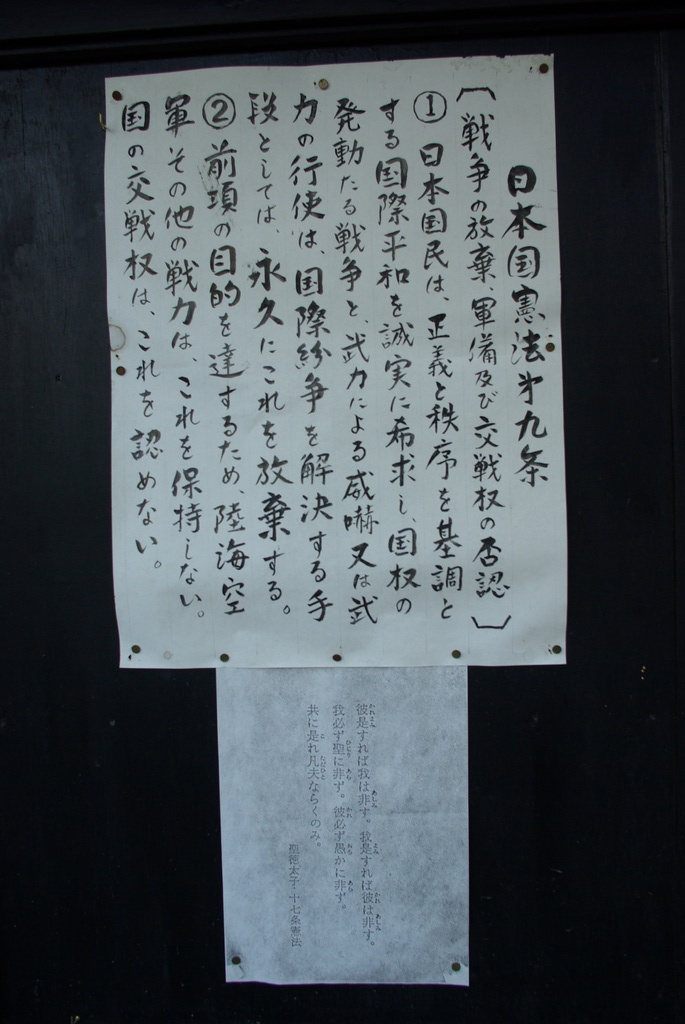 日本国憲法第九条
〔戦争の放棄、軍備及び交戦权の否認〕
① 日本国民は、正義と秩序を基調と
する国際平和を誠実に希求し、国权の
発動たる戦争と、武力による威嚇又は武
力の行使は、国際紛争を解決する手
段としては、永久にこれを放棄する。
② 前項の目的を達するため、陸海空
軍その他の戦力は、これを保持しない。
国の交戦权は、これを認めない。
彼是すれば我は非す。我是すれば彼は非す。
我必ず聖に非ず。彼必ず愚かに非ず。
共に是れ凡夫ならくのみ。
聖徳太子・十七条憲法